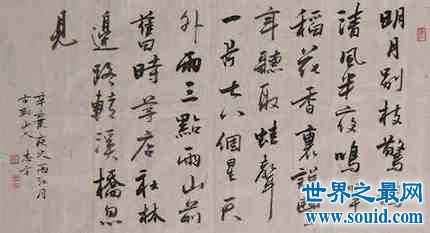 明月别枝驚鵲
清風半夜鳴蟬
稻花香裏說豐
年聽取蛙聲
一片七八個星天
外兩三點雨山前
舊時茅店社林
邊路轉溪橋忽
見
西江月
世界之最网
www.souid.com